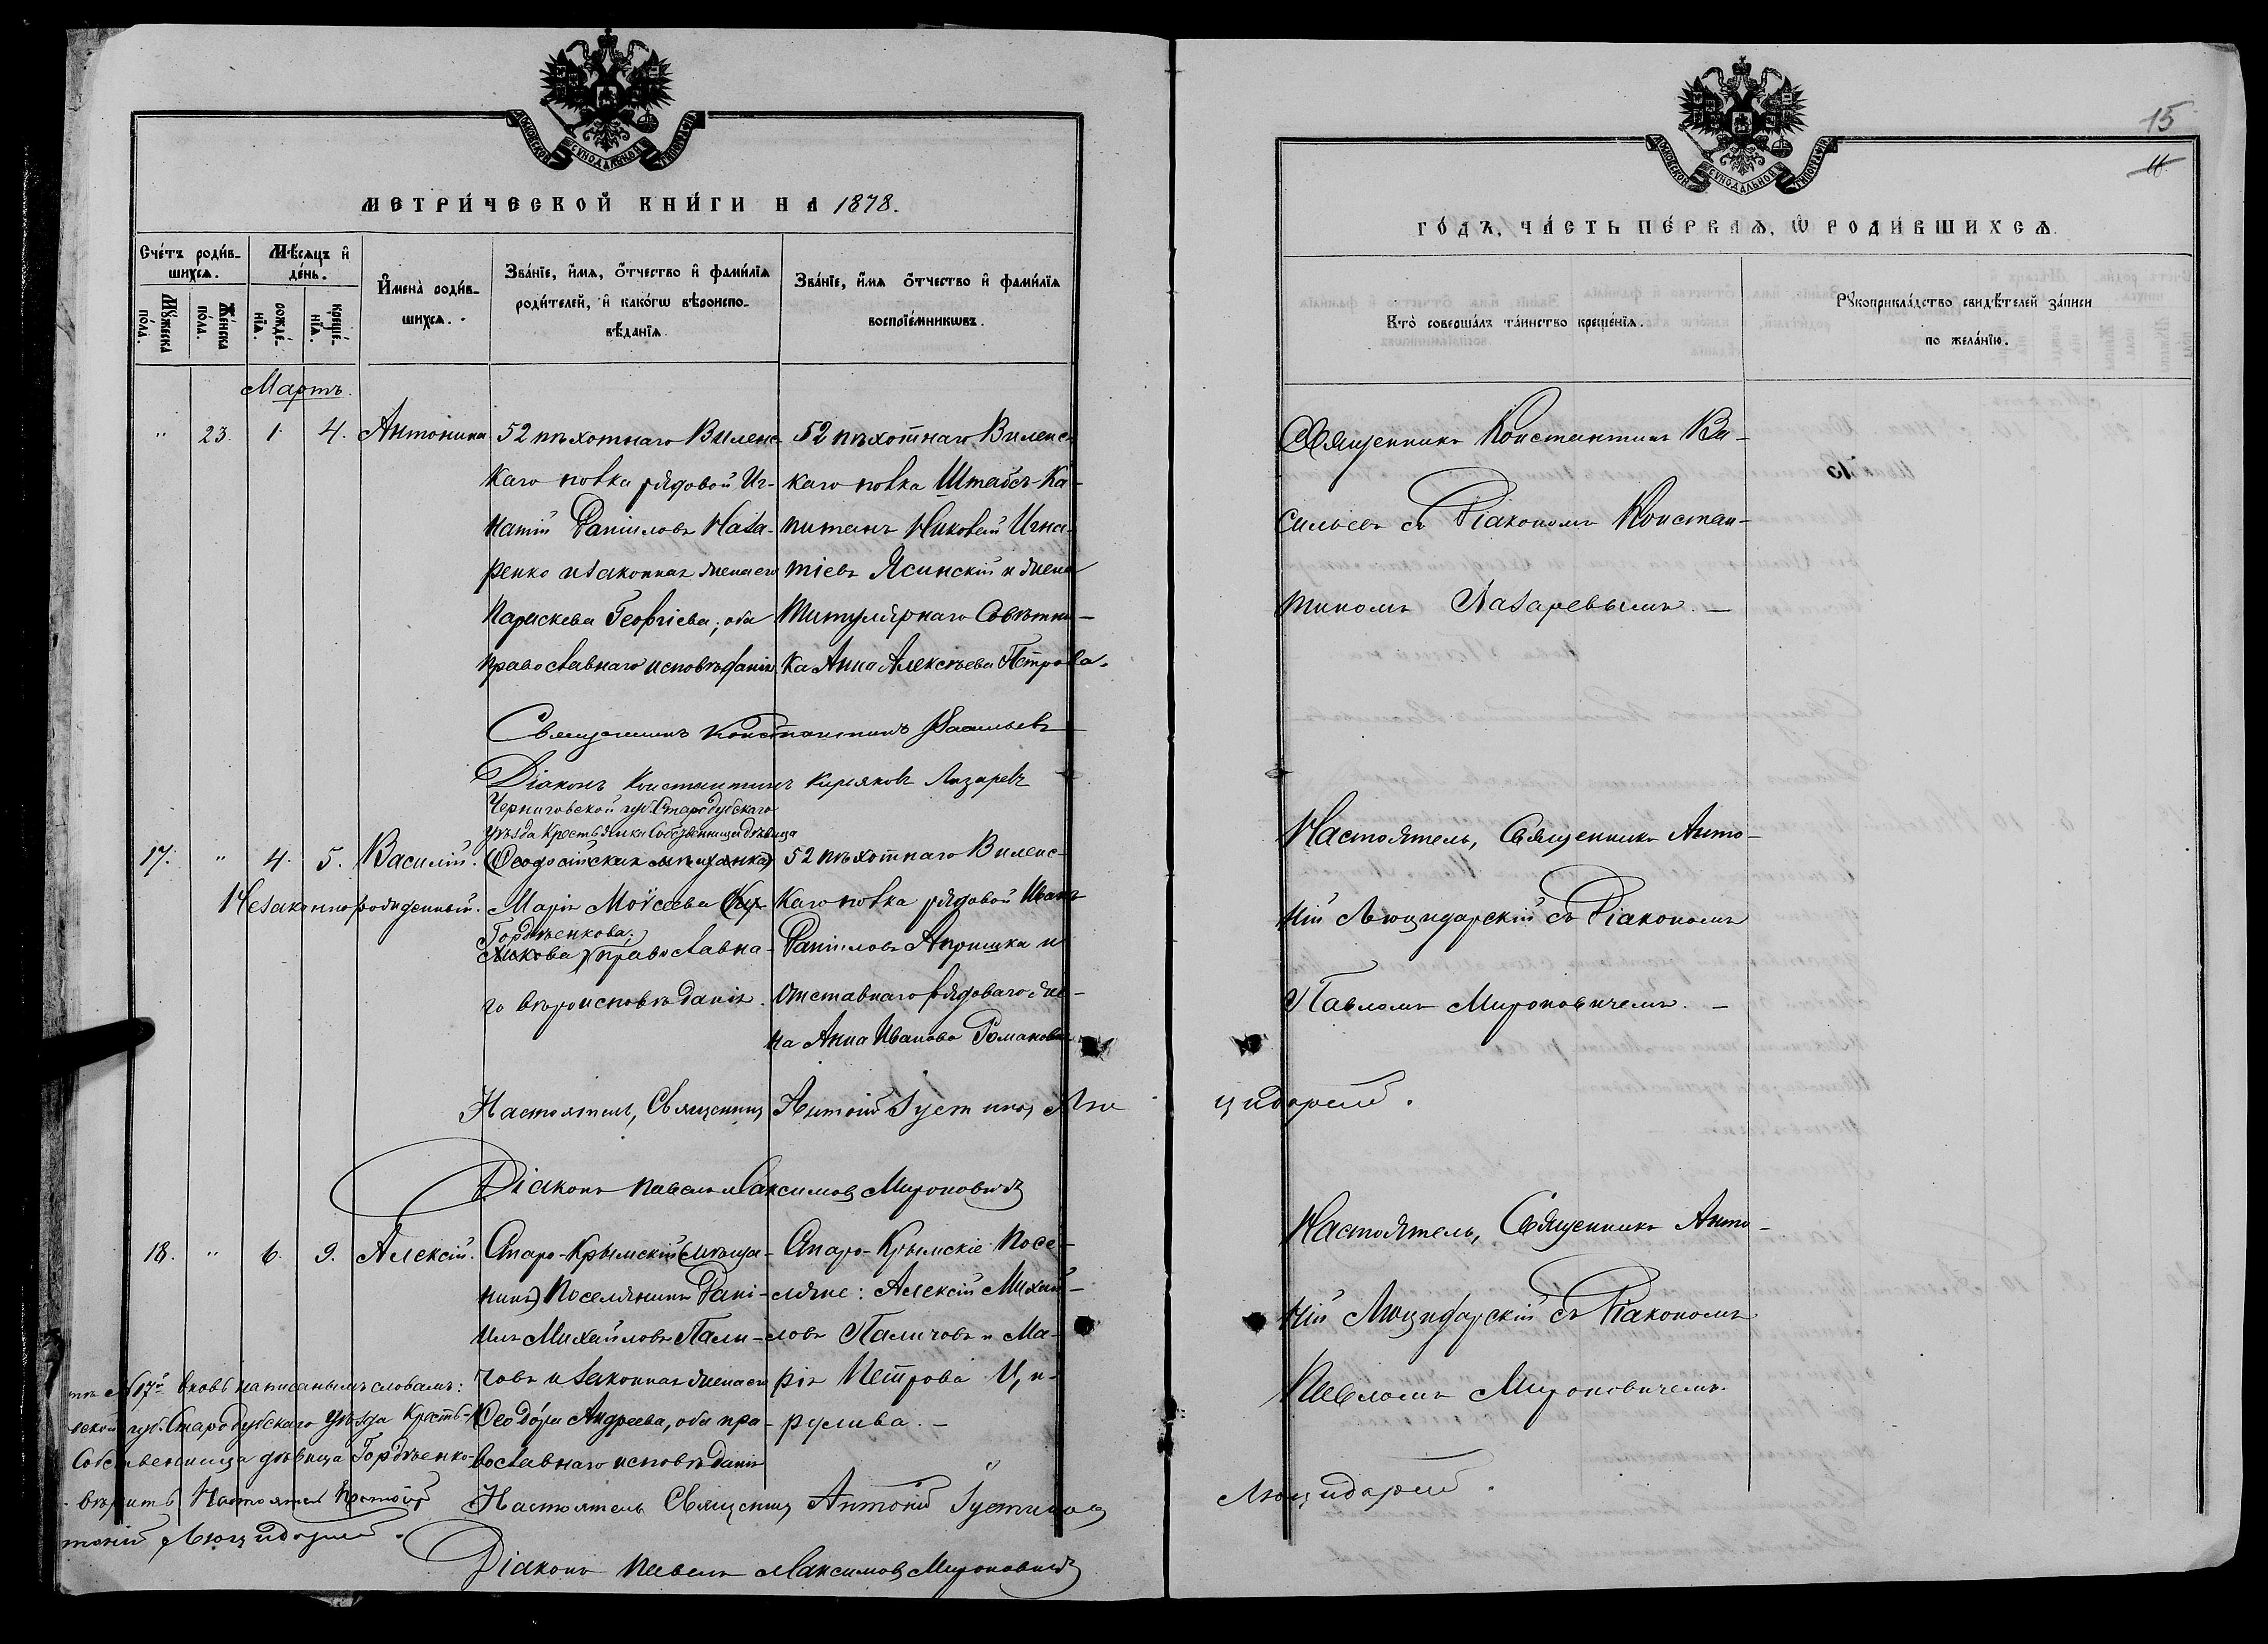 МОСКОВСКОЙ СѴНОДАЛЬНОЙ ТѴПОГРАФІИ
МЕТРИ́ЧЕСКОЙ КНИ́ГИ НА 1878.
Сче́тъ роди́в-
шихсѧ.
Мѣ́сѧцъ и҆
де́нь.
Мꙋ́жеска
по́ла.
Же́нска
по́ла.
рожде́-
нїѧ.
креще́-
нїѧ.
И҆мена̀ роди́в-
шихсѧ.
Зва́нїе, и҆́мѧ, ѻ҆́тчество и҆ фами́лїѧ
роди́телей, и҆ како́гѡ вѣроиспо-
вѣ́данїѧ.
Зва́нїе, и҆́мѧ ѻ҆́тчество и҆ фами́лїѧ
воспрїе́мникѡвъ.
Мартъ.
" 23. 1. 4. Антонина
52 пѣхотнаго Виленс-
каго полка рядовой Иг-
натій Даніиловъ Наза-
ренко и законная жена его
Параскева Георгіева; оба
православнаго исповѣданія.
52 пѣхотнаго Виленс-
каго полка Штабсъ-Ка-
питанъ Николай Игна-
тіевъ Ясинскій и жена
Титулярнаго Совѣтни-
ка Анна Алексѣева Петрова.
Священникъ Константинъ Васильевъ
Діаконъ Константинъ Кирьяковъ Лазаревъ
Черниговской губ. Стародубскаго
уѣзда Крестьянка Собственница дѣвица
17. " 4. 5. Василій.
Незаконнорожденный.
(Ѳеодосійская мѣщанка)
Марія Моѵсеева (
Гордѣенкова;
православна-
го вѣроисповѣданія.
52 пѣхотнаго Виленс-
каго полка рядовой Иванъ
Даніиловъ Апришка и
отставнаго рядоваго же-
на Анна Иванова Романова
Настоятель, Священникъ Антоній Іустиновъ Лю
цидарскій.
Діаконъ Павелъ Максимовъ Мироновичъ
18. " 6. 9. Алексій.
Старо-Крымскій (мѣща-
нинъ) Поселянинъ Дані-
илъ Михайловъ Пали-
човъ и законная жена его
Ѳеодора Андреева, оба пра-
вославнаго исповѣданія
Старо-Крымскіе Посе-
ляне: Алексій Михай-
ловъ Паличовъ и Ма-
рія Петрова Ци-
рулива.
№ 17й вновь написанымъ словамъ:
ской губ. Стародубскаго уѣзда Кресть-
Собственница дѣвица Гордѣенко-
вѣрить Настоятель Протоіер
тоній Люцидарскій.
Настоятель Священникъ Антоній Іустиновъ
Люцидарскій.
Діаконъ Павелъ Максимовъ Мироновичъ
15
МОСКОВСКОЙ СѴНОДАЛЬНОЙ ТѴПОГРАФІИ
ГО́ДЪ, ЧА́СТЬ ПЕ́РВАѦ, Ѡ҆ РОДИ́ВШИХСѦ.
Кто̀ соверша́лъ та́инство креще́нїѧ.
Рꙋкоприкла́дство свидѣ́телей за́писи
по жела́нїю.
Священникъ Константинъ Ва-
сильевъ съ Діакономъ Констан-
тиномъ Лазаревымъ. —
Настоятель, Священникъ Анто-
ній Люцидарскій съ Діакономъ
Павломъ Мироновичемъ. —
Настоятель, Священникъ Анто-
ній Люцидарскій съ Діакономъ
Павломъ Мироновичемъ.